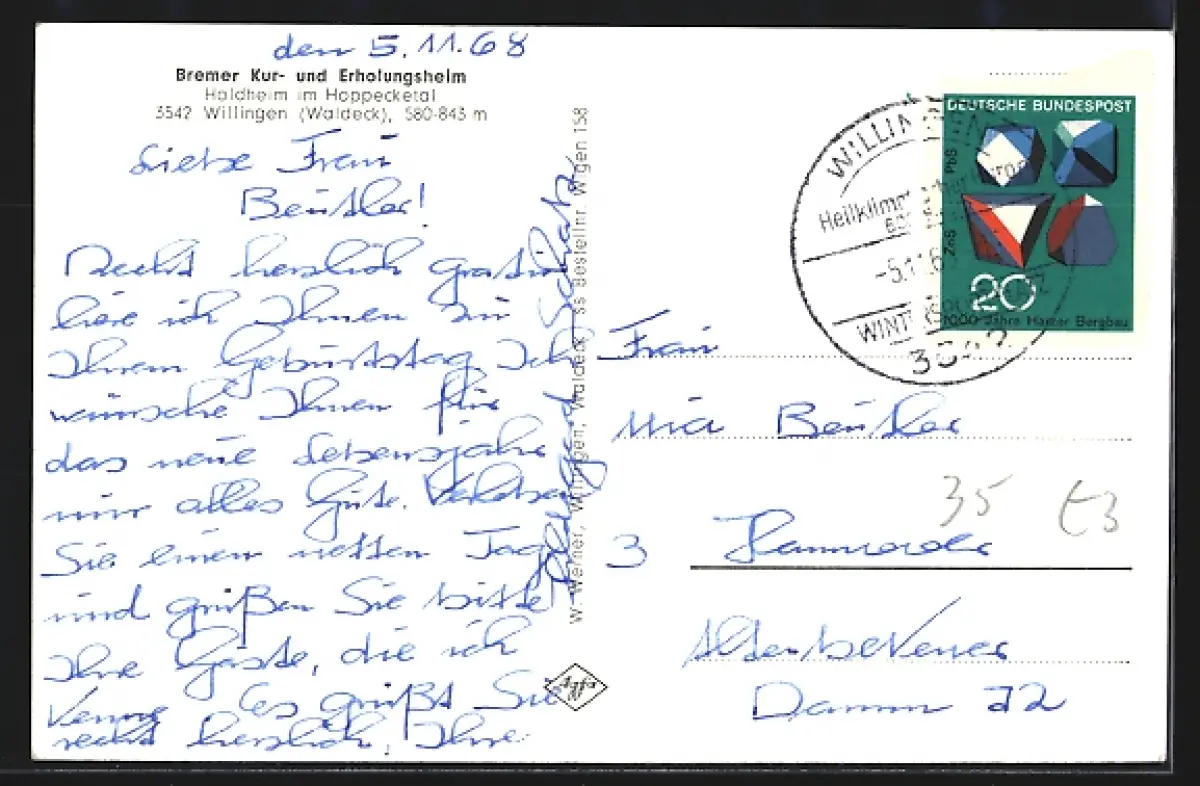 den 5.11.68
Bremer Kur- und Erholungsheim
Haldheim im Hoppecketal
3542 Willingen (Waldeck), 580-843 m
Liebe Frau
Beutler!
Recht herzlich gratu
liere ich Ihnen zu
Ihrem Geburtstag. Ich
wünsche Ihnen für
das neue Lebensjahr
nur alles Gute. Verleben
Sie einen netten Tag
und grüßen Sie bitte
Ihre Gäste, die ich
kenne. Es grüßt Sie
recht herzlich, Ihre
Schatz
W. Werner, Willingen, Waldeck
Bestellnr. Wigen 158
Agfa
DEUTSCHE BUNDESPOST
PbS
ZnS
20
1000 Jahre Harzer Bergbau
WILLINGEN
Heilklim
-5.11.6
WINT
Frau
Mia Beutler
35 E3
3 Hannover
Altenbekener
Damm 82